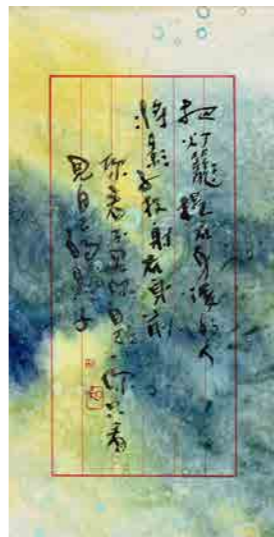 把灯籠提在身後的人
將影子投射在身前
你看不見你自己，你只看
見自己的影子